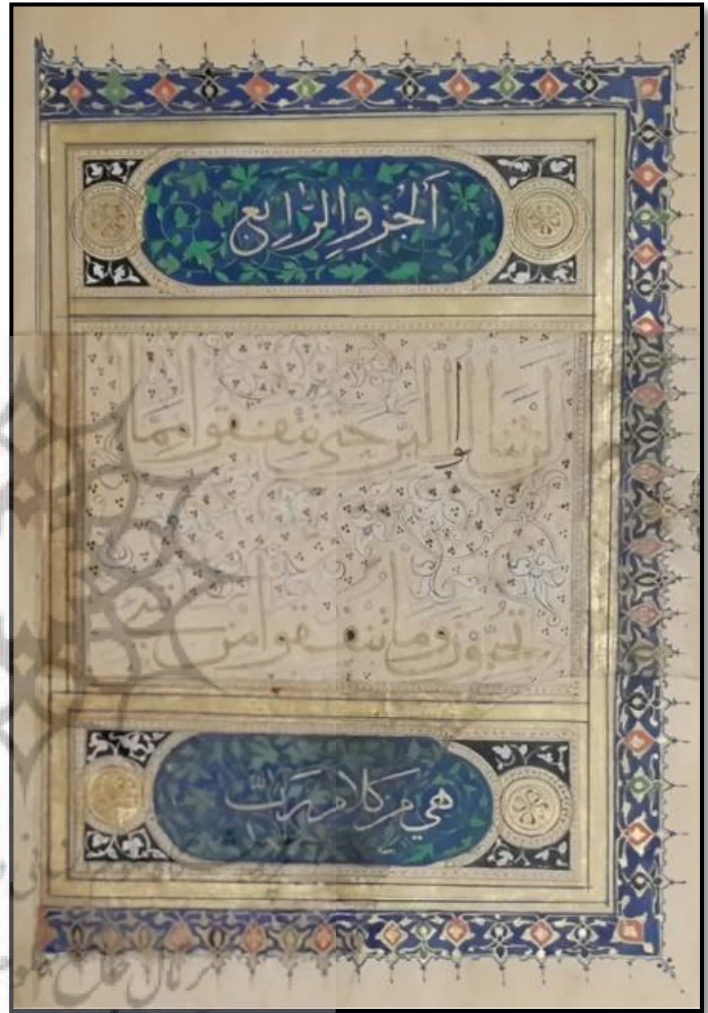 اَلْجُزْوُ الرَّابِعُ
لن تنالوا البر حتى تنفقوا مما
تحبون وما تنفقوا من
هي مِن كلام رَبِّ